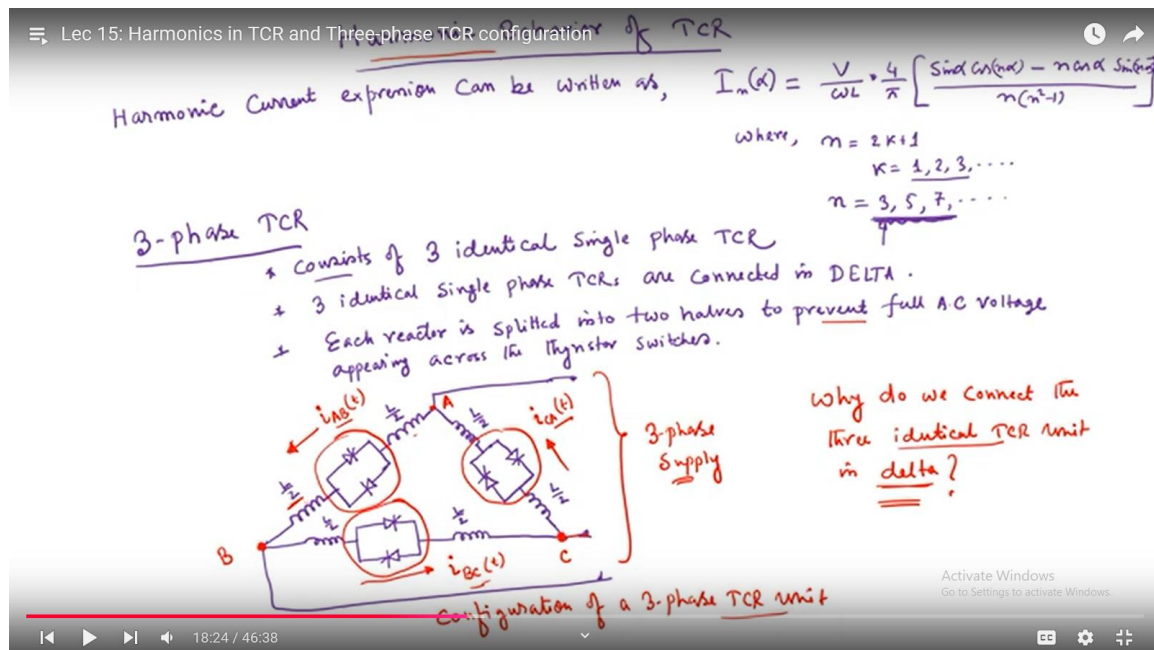 Lec 15: Harmonics in TCR and Three-phase TCR configuration
Behavior of TCR
Harmonic Current exprenion Can be written as, Iₙ(α) = V/ωL · 4/π [ (Sinα Cos(nα) − n cosα Sin(nα)) / n(n²-1) ]
where, n = 2K+1
K = 1, 2, 3, ....
n = 3, 5, 7, ....
3-phase TCR
* Consists of 3 identical Single phase TCR
* 3 identical Single phase TCRs are Connected in DELTA .
* Each reactor is splitted into two halves to prevent full A.C voltage
appearing across the Thyristor Switches.
iAB(t)
L/2
A
L/2
iCA(t)
3-phase
Supply
Why do we Connect the
three identical TCR unit
in delta?
L/2
L/2
L/2
L/2
B
iBC(t)
C
Configuration of a 3-phase TCR unit
Activate Windows
Go to Settings to activate Windows.
18:24 / 46:38
CC